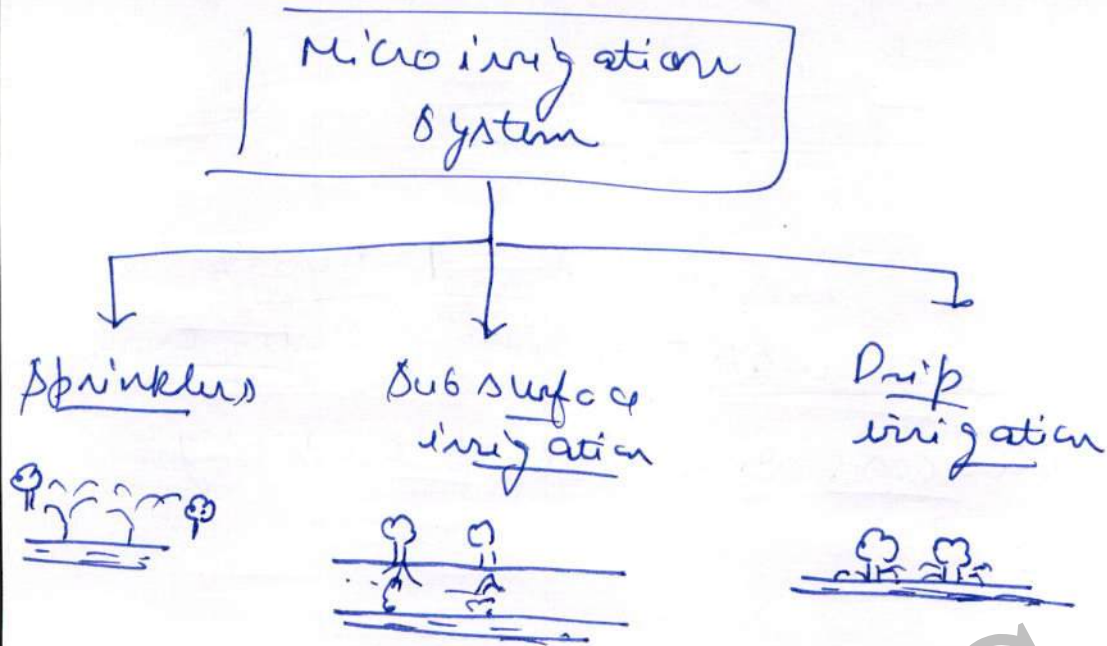 Micro irrigation
System
Sprinklers
Sub surface
irrigation
Drip
irrigation